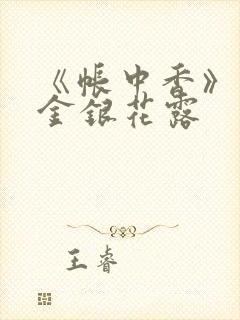 《帐中香》
金银花露
王睿